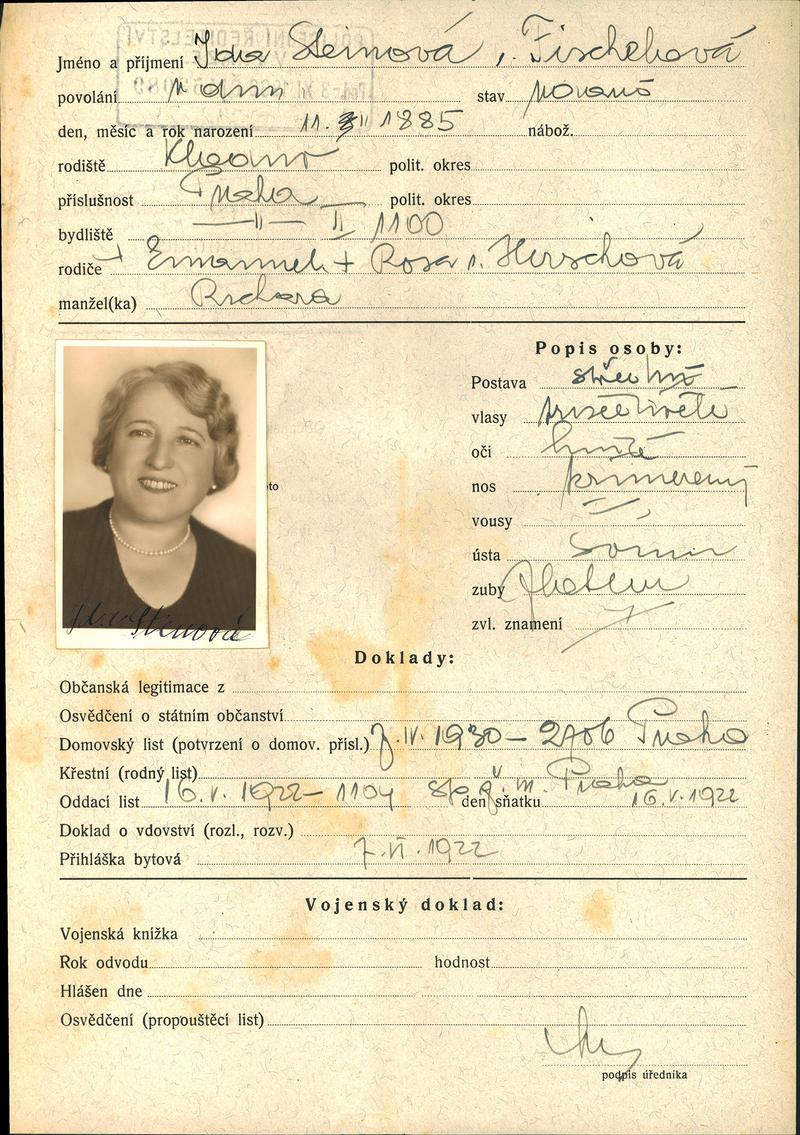 Jméno a příjmení Ida Steinová r. Fischelová
povolání v dom. stav vdaná
den, měsíc a rok narození 11. II 1885 nábož.
rodiště polit. okres
příslušnost Praha polit. okres
bydliště —„— II 1100
rodiče Emanuel + Rosa r. Hirschová
manžel(ka) Richard
Popis osoby:
Postava střední
vlasy
oči hnědé
nos přiměřený
vousy —
ústa souměr
zuby
zvl. znamení
oto
Ida Steinová
Doklady:
Občanská legitimace z
Osvědčení o státním občanství
Domovský list (potvrzení o domov. přísl.) 7. IV. 1930 – 2706 Praha
Křestní (rodný list)
Oddací list 16. V. 1922 – 1104 Praha den sňatku 16. V. 1922
Doklad o vdovství (rozl., rozv.)
Přihláška bytová 7. VI. 1922
Vojenský doklad:
Vojenská knížka
Rok odvodu hodnost
Hlášen dne
Osvědčení (propouštěcí list)
podpis úředníka